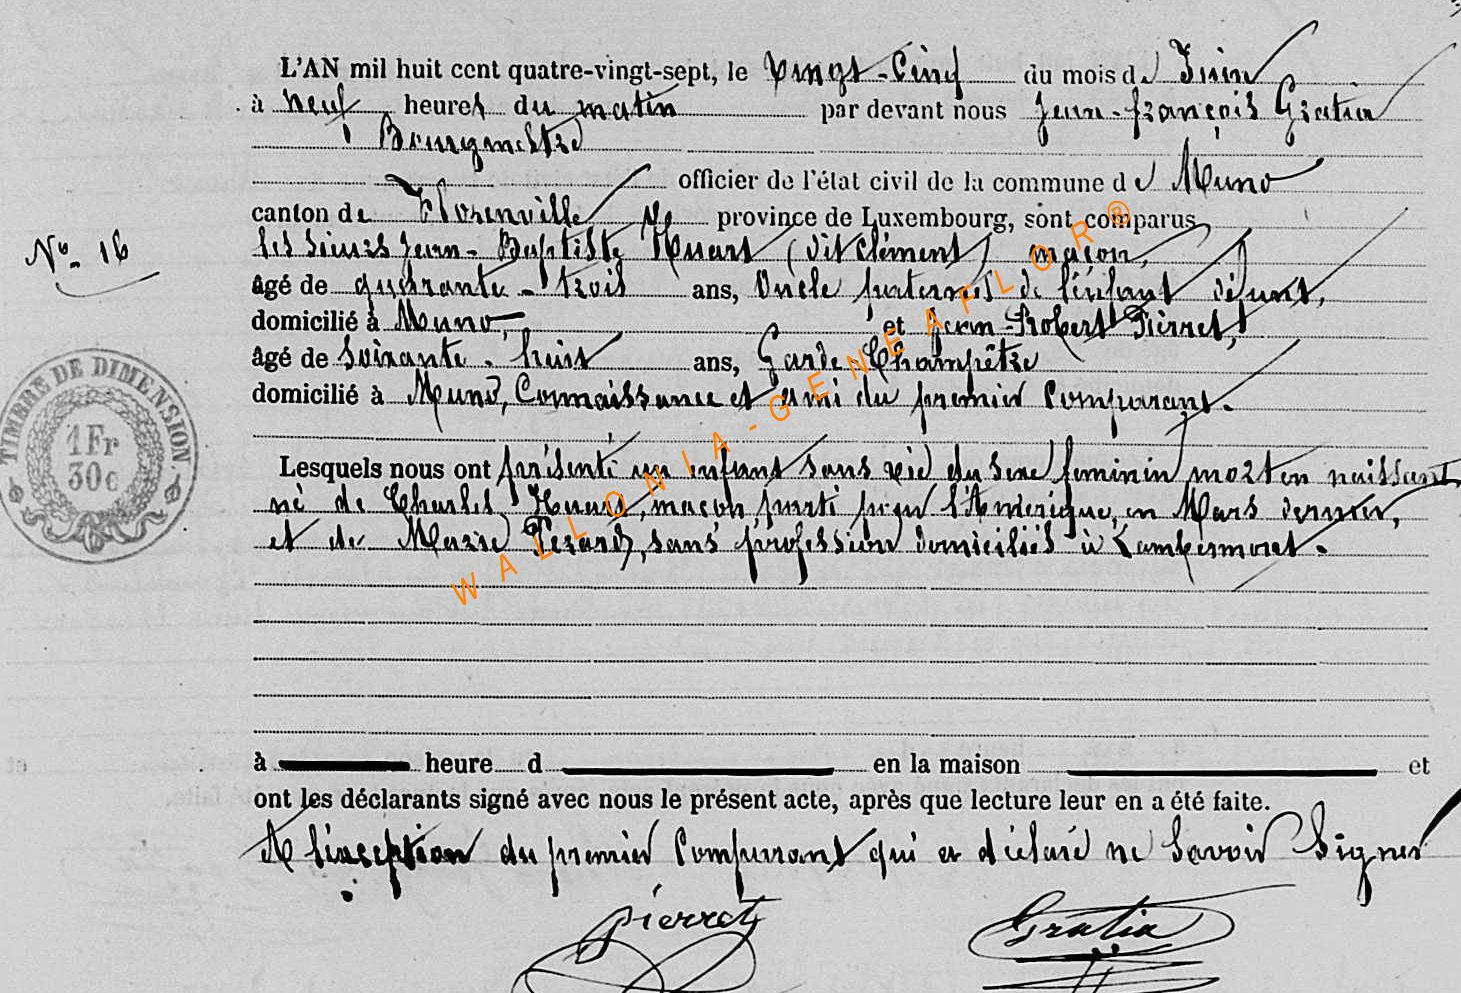 L'AN mil huit cent quatre-vingt-sept, le Vingt-Cinq du mois de Juin
à neuf heures du matin par devant nous Jean-françois Gratia
Bourgmestre
officier de l'état civil de la commune de Muno
canton de Florenville province de Luxembourg, sont comparus
les sieurs Jean-Baptiste Huart (dit Clément) maçon,
âgé de quarante-trois ans, Oncle paternel de l'enfant défunt,
domicilié à Muno, et Jean-Robert Pierret,
âgé de soixante-huit ans, Garde-Champêtre
domicilié à Muno, Connaissance et ami du premier Comparant.
Lesquels nous ont présenté un enfant sans vie du sexe feminin mort en naissant
né de Charles Huart, maçon parti pour l'Amérique, en Mars dernier,
et de Marie Pezard, sans profession domiciliés à Lambermont.
à heure d en la maison et
ont les déclarants signé avec nous le présent acte, après que lecture leur en a été faite.
A l'exception du premier Comparant qui a déclaré ne Savoir Signer
Pierret Gratia
No. 16
TIMBRE DE DIMENSION.
1 Fr
30c
WALLONIA-GENEAFLOR®